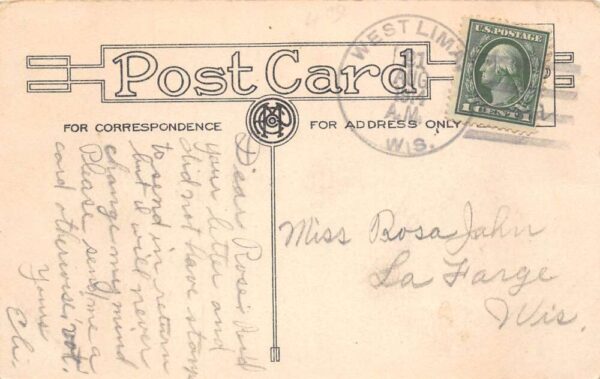 Post Card
FOR CORRESPONDENCE
FOR ADDRESS ONLY
WEST LIMA
AUG
A.M.
WIS.
U.S. POSTAGE
1 CENT 1
Dear Rose: Recd
your letter and
did not have stamp
to send in return
but it will never
change my mind
Please send me a
card otherwise, not.
Yours
Eli.
Miss Rosa Jahn
La Farge
Wis.